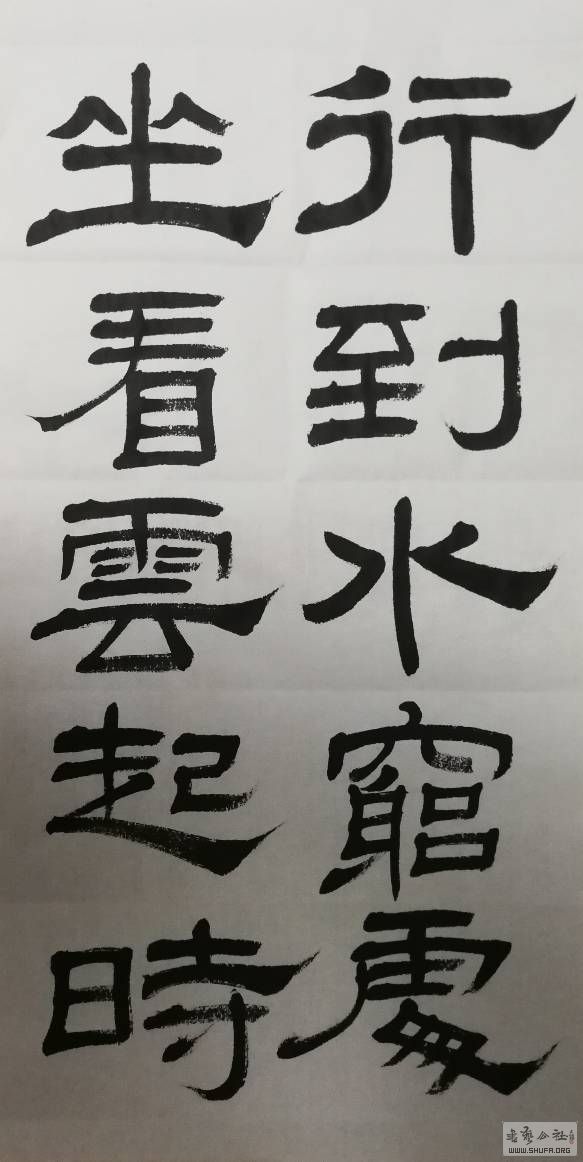 行到水窮處
坐看雲起時
书艺公社
WWW.SHUFA.ORG